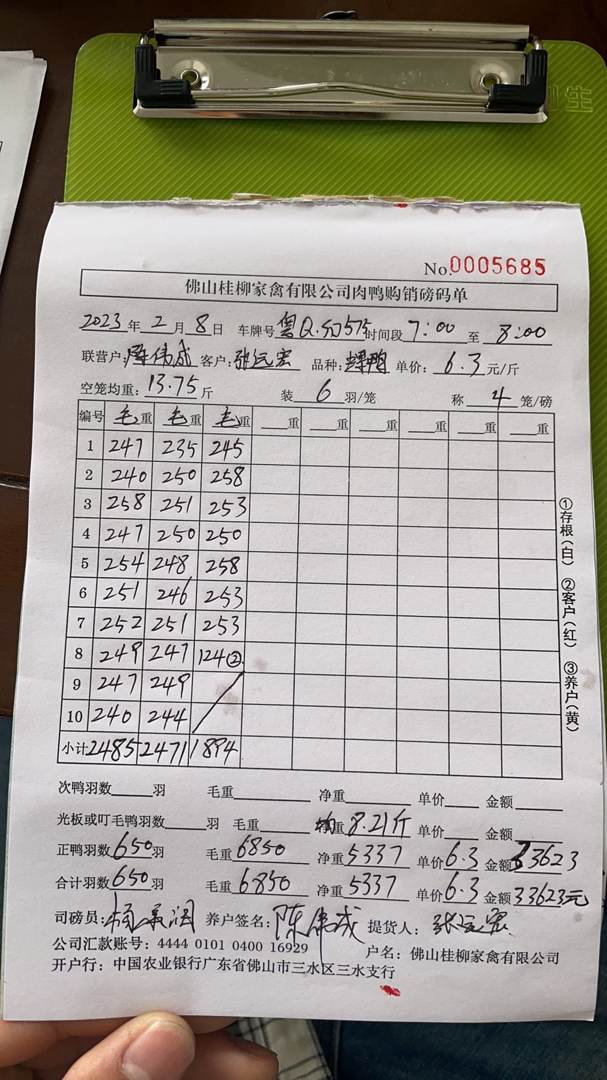 No.0005685
佛山桂柳家禽有限公司肉鸭购销磅码单
2023年2月8日 车牌号粤Q·50575时间段7:00至8:00
联营户:陈伟成 客户:张远宏 品种: 单价:6.3元/斤
空笼均重:13.75斤 装6羽/笼 称4笼/磅
编号 毛重 毛重 毛重 重 重 重 重 重 重
1 247 235 245
2 240 250 258
3 258 251 253
4 247 250 250
5 254 248 258
6 251 246 253
7 252 251 253
8 249 247 124②
9 247 249
10 240 244
小计 2485 2471 1894
①存根(白) ②客户(红) ③养户(黄)
次鸭羽数 羽 毛重 净重 单价 金额
光板或叮毛鸭羽数 羽 毛重 均重8.21斤 单价 金额
正鸭羽数650羽 毛重6850 净重5337 单价6.3金额33623
合计羽数650羽 毛重6850 净重5337 单价6.3金额33623元
司磅员: 养户签名:陈伟成 提货人:张远宏
公司汇款账号:4444 0101 0400 16929 户名:佛山桂柳家禽有限公司
开户行:中国农业银行广东省佛山市三水区三水支行